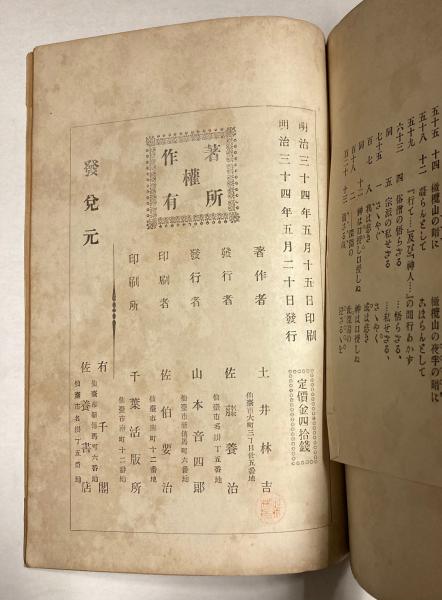 五十五 十四 橄欖山の暗に 橄欖山の夜半の暗に
五十八 十二
五十九 『行て…』及び『神人…』の間行あかす
六十三 四 俗僧の悟らざる …悟らざる、
同 五 宗派の私せざる …私せざる、
七十五
百七 八 我は悲き 或は悲き
同 十二 神は口授し口授しぬ 神は口授しぬ
百十八
百二十 十三
明治三十四年五月十五日印刷
明治三十四年五月二十日發行
定價金四拾錢
著作所權有
著作者 土井林吉
仙臺市大町三丁目廿五番地
發行者 佐藤養治
仙臺市名掛丁五番地
發行者 山本音四郎
仙臺市新傳馬町六番地
印刷者 佐伯要治
仙臺市南町十二番地
印刷所 千葉活版所
仙臺市南町十二番地
發兌元
有千閣
仙臺市新傳馬町六番地
佐養書店
仙臺市名掛丁五番地